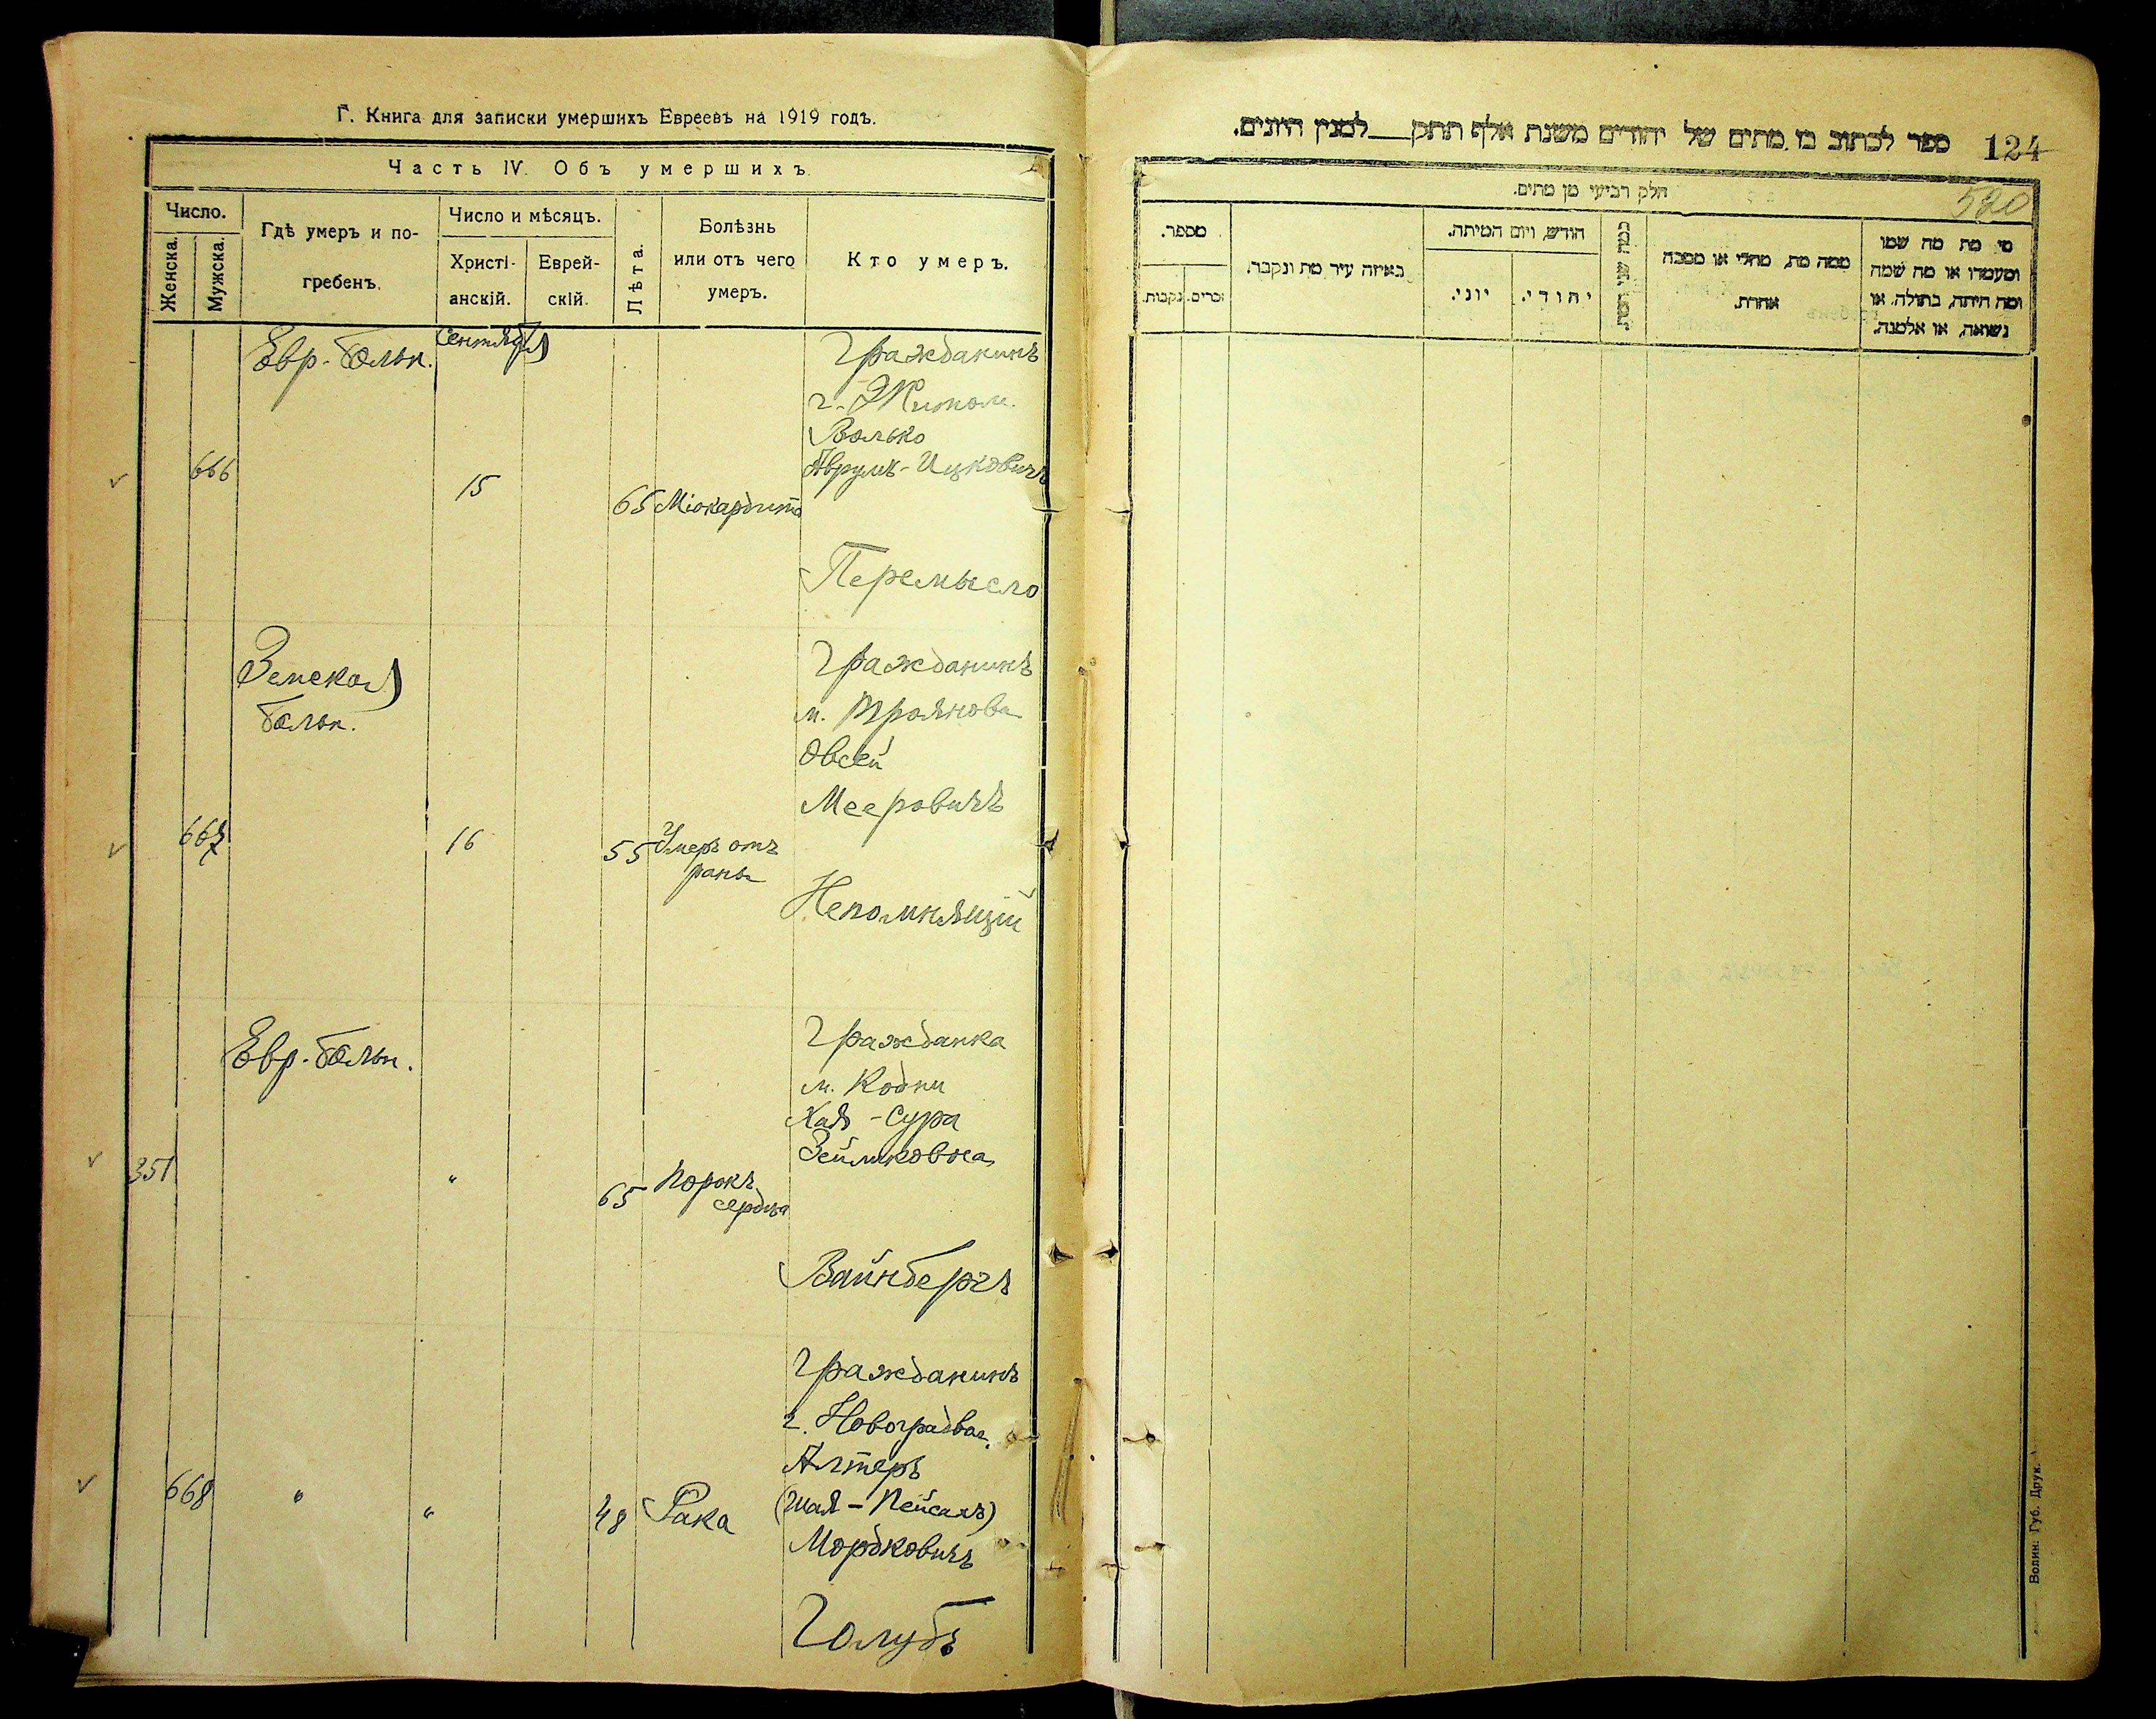 Г. Книга для записки умершихъ Евреевъ на 1919 годъ.
Часть IV. Объ умершихъ.
Число.
Женска.
Мужска.
Гдѣ умеръ и по-
гребенъ.
Число и мѣсяцъ.
Христі-
анскій.
Еврей-
скій.
Лѣта.
Болѣзнь
или отъ чего
умеръ.
Кто умеръ.
Евр. больн.
Сентября
Гражданинъ
г. Житом.
Волько
Аврумъ-Ицковичъ
666
15
65
Міокардитъ
Перемысло
Земская
больн.
Гражданинъ
м. Троянова
Овсей
Мееровичъ
667
16
55
Умеръ отъ
раны
Непомнящій
Евр. больн.
Гражданка
м. Кодни
Хая - Сура
Зейликовна
351
"
65
Порокъ
сердца
Вайнбергъ
Гражданинъ
г. Новоградвол.
Алтеръ
(Шая - Пейсахъ)
Мордковичъ
668
"
"
48
Рака
Голубъ
ספר לכתוב בו מתים של יהודים משנת אלף תתק___למנין היונים.
124
520
חלק רביעי מן מתים.
מספר.
נקבות.
זכרים.
באיזה עיר מת ונקבר.
חודש ויום המיתה.
יוני.
יהודי.
כמה שני
ממה מת, מחלי או מסבה
אחרת.
מי מת מה שמו
ומעמדו או מה שמה
ומה היתה, בתולה, או
נשואה, או אלמנה.
Волин. Губ. Друк.